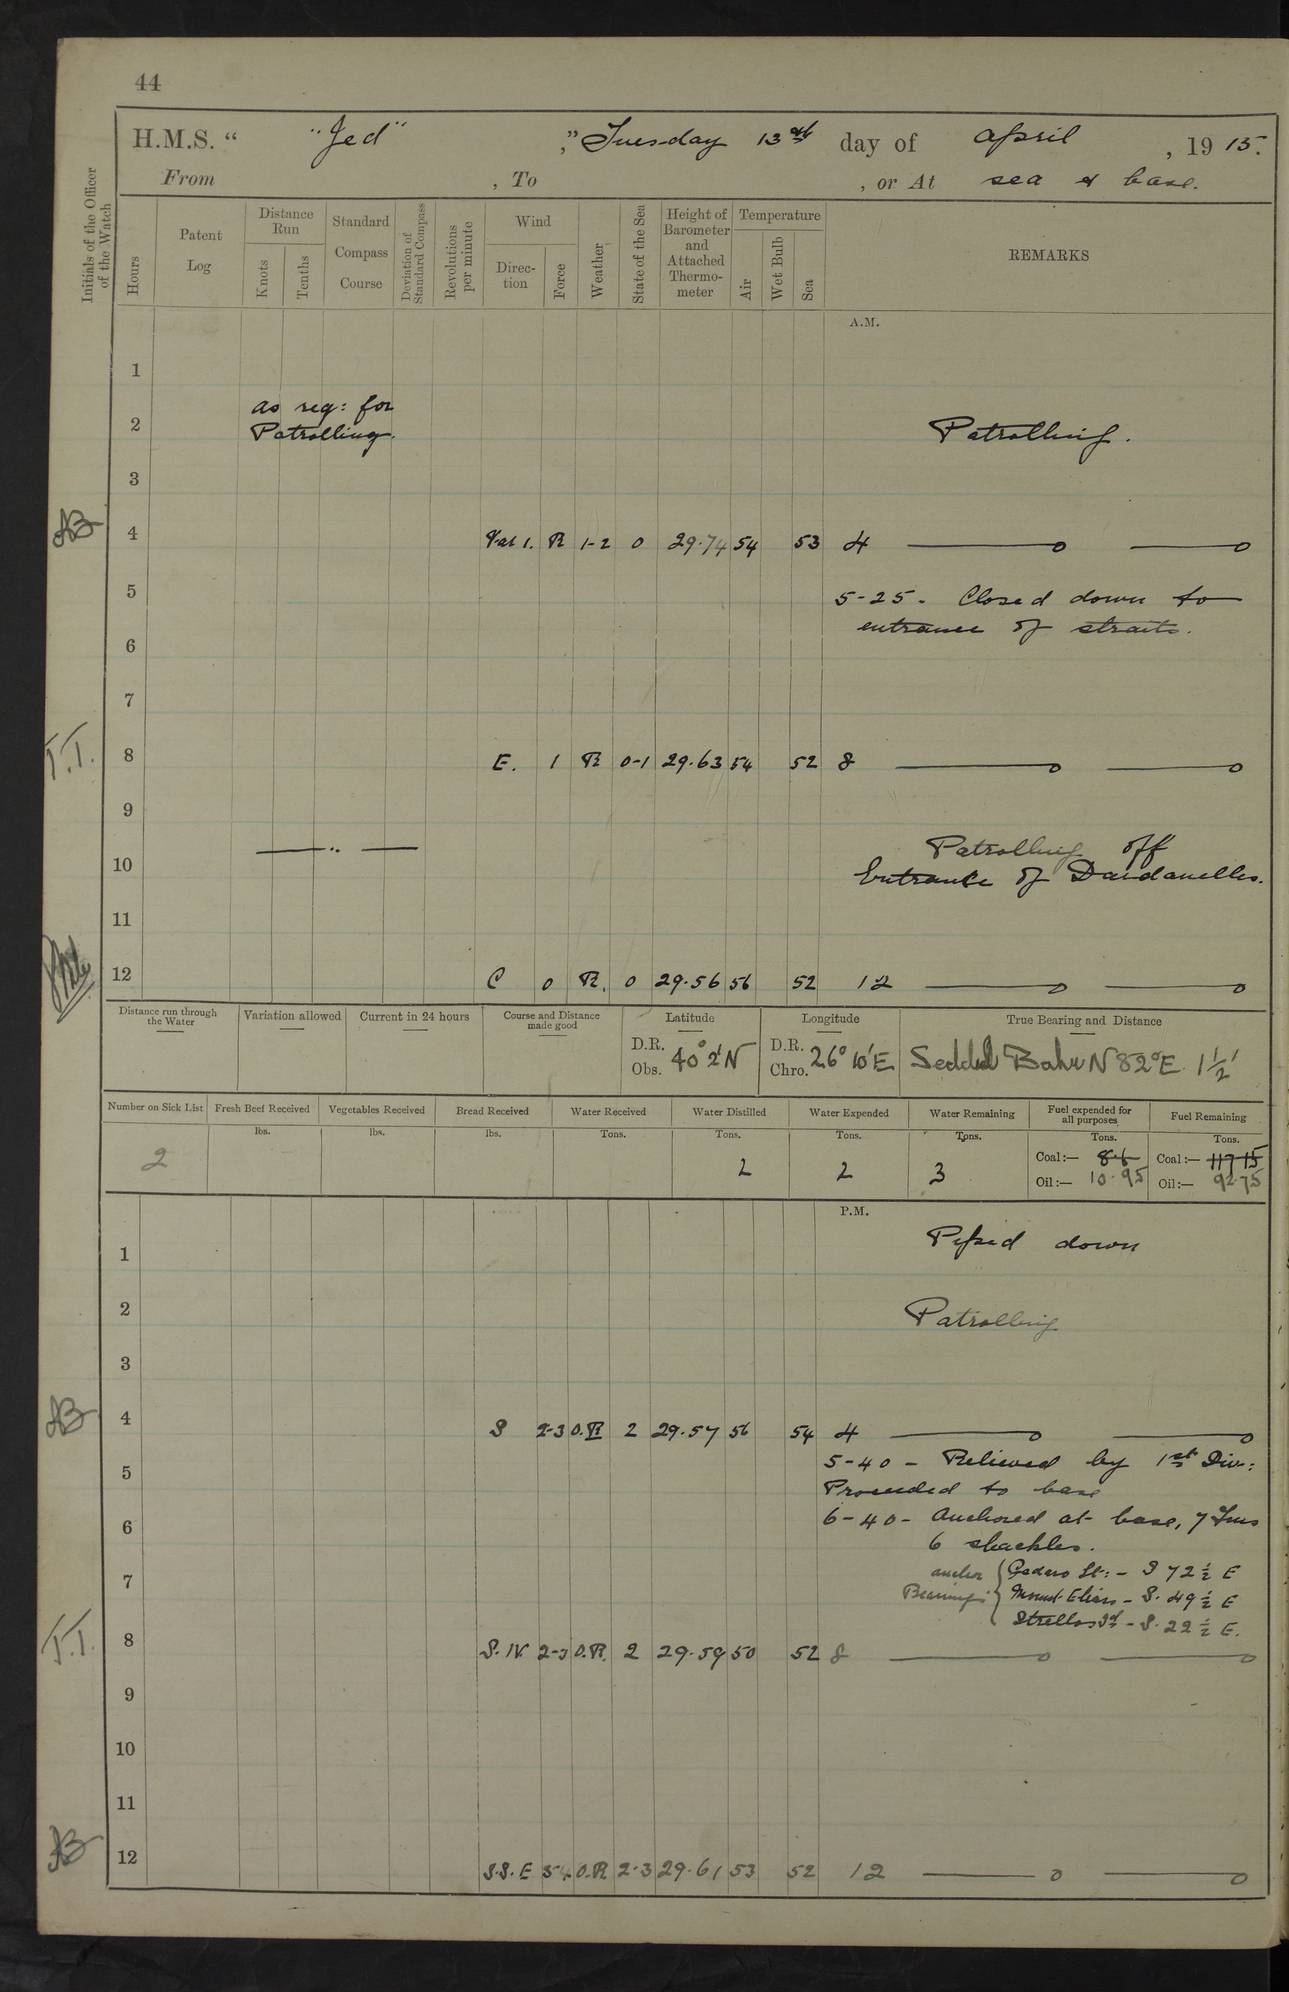 44
H.M.S. “ "Jed" ,” Tuesday 13th day of April , 1915.
From , To , or At sea & base.
Initials of the Officer of the Watch
Hours
Patent Log
Distance Run
Knots
Tenths
Standard Compass Course
Deviation of Standard Compass
Revolutions per minute
Wind
Direction
Force
Weather
State of the Sea
Height of Barometer and Attached Thermometer
Temperature
Air
Wet Bulb
Sea
REMARKS
A.M.
1
as req: for
2 Patrolling. Patrolling.
3
AB 4 Var 1. R 1-2 0 29.74 54 53 4
5 5-25- Closed down to
entrance of straits.
6
7
T.T. 8 E. 1 R 0-1 29.63 54 52 8
9
Patrolling off
10 Entrance of Dardanelles.
11
12 C 0 R. 0 29.56 56 52 12
Distance run through the Water
Variation allowed
Current in 24 hours
Course and Distance made good
Latitude
D.R.
Obs. 40° 2' N
Longitude
D.R.
Chro. 26° 10' E
True Bearing and Distance
Seddul Bahr N 82° E. 1 1/2'
Number on Sick List
2
Fresh Beef Received
lbs.
Vegetables Received
lbs.
Bread Received
lbs.
Water Received
Tons.
Water Distilled
Tons.
2
Water Expended
Tons.
2
Water Remaining
Tons.
3
Fuel expended for all purposes
Tons.
Coal:— 8.6
Oil:— 10.95
Fuel Remaining
Tons.
Coal:— 117.15
Oil:— 92.75
P.M.
1 Piped down
2 Patrolling
3
AB 4 S 2-3 O.R 2 29.57 56 54 4
5 5-40- Relieved by 1st Div:
Proceeded to base
6 6-40- Anchored at base, 7 fms
6 shackles.
7 anchor Bearings { Gadaro Lt:- S 72 1/2 E
Mount Elias - S. 49 1/2 E
Strellos Id - S. 22 1/2 E.
T.T. 8 S.W. 2-3 O.R. 2 29.59 50 52 8
9
10
11
AB 12 S.S.E 5.4. O.R 2-3 29.61 53 52 12